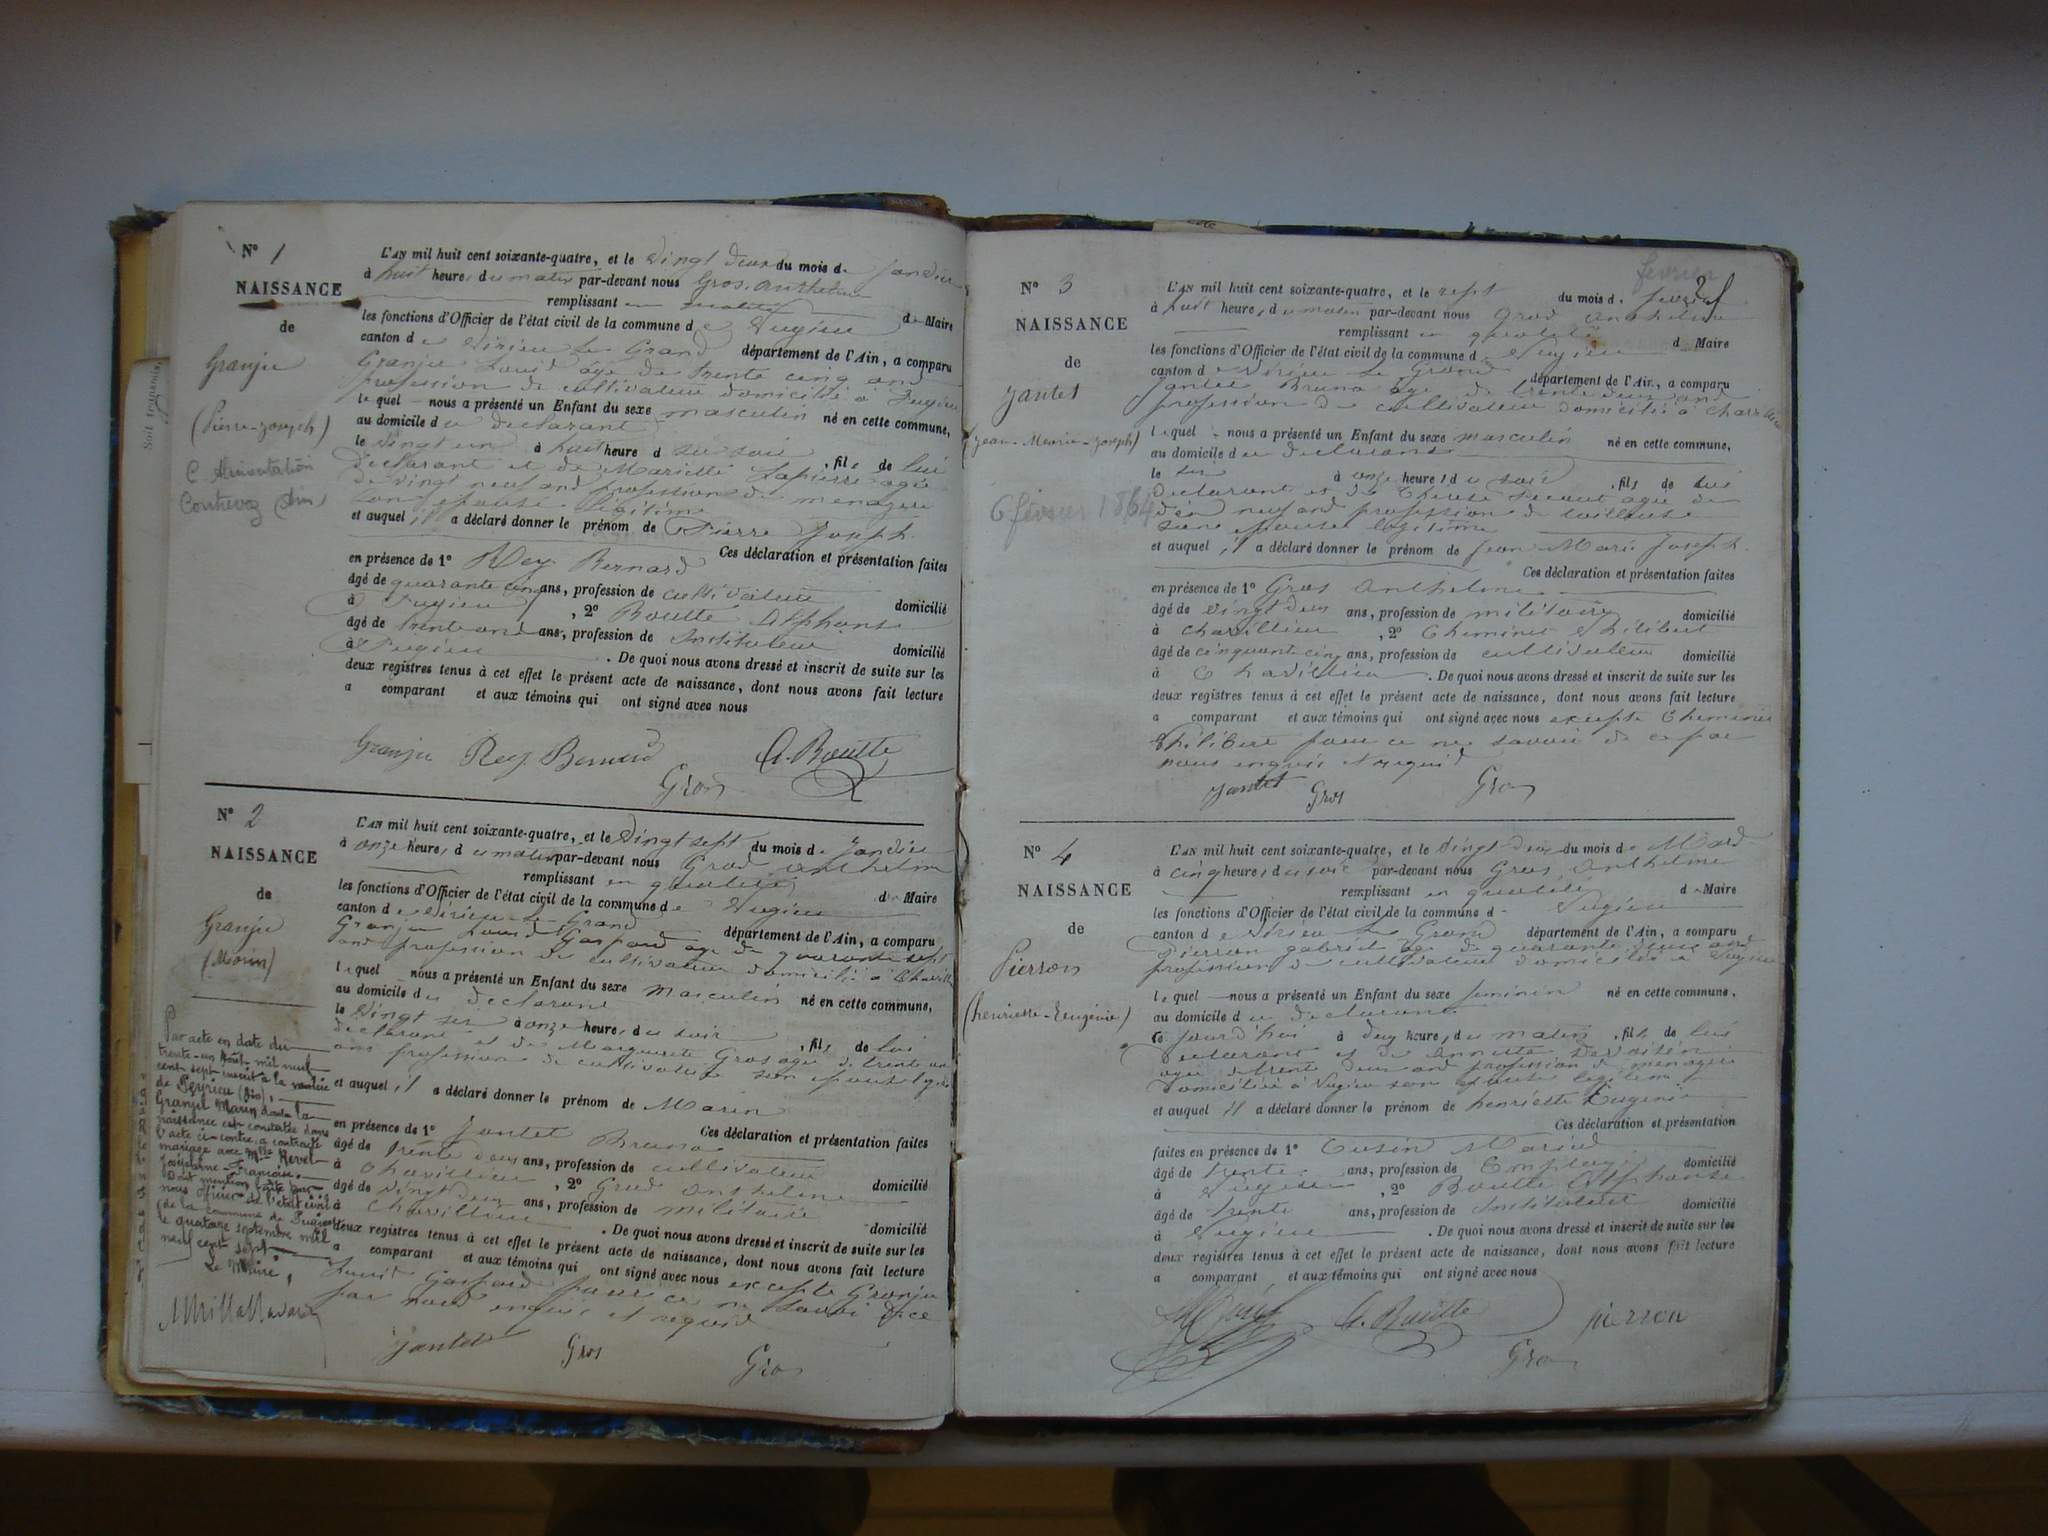 N° 1
NAISSANCE
de
Granju
(Pierre-Joseph)
C Alimentation
Contrevoz Ain
L'AN mil huit cent soixante-quatre, et le vingt deux du mois de janvier
à huit heure, du matin par-devant nous Gros, Anthelme
remplissant en qualité
les fonctions d'Officier de l'état civil de la commune de Pugieu de Maire
canton de Virieu le Grand département de l'Ain, a comparu
Granju Louis âgé de trente cinq ans
profession de cultivateur domicilié à Pugieu
lequel nous a présenté un Enfant du sexe masculin né en cette commune,
au domicile du déclarant
le vingt un à huit heure du soir , fils de lui
déclarant et de Mariette Lapierre agée
de vingt neuf ans profession de menagere
son epouse légitime
et auquel il a déclaré donner le prénom de Pierre Joseph.
Ces déclaration et présentation faites
en présence de 1° Rey Bernard
âgé de quarante cinq ans, profession de cultivateur domicilié
à Pugieu , 2° Boutte Alphonse
âgé de trente ans ans, profession de Instituteur domicilié
à Pugieu . De quoi nous avons dressé et inscrit de suite sur les
deux registres tenus à cet effet le présent acte de naissance, dont nous avons fait lecture
a comparant et aux témoins qui ont signé avec nous
Granju Rey Bernard A. Boutte
Gros
N° 2
NAISSANCE
de
Granju
(Marin)
L'AN mil huit cent soixante-quatre, et le vingt sept du mois de janvier
à onze heure, du matin par-devant nous Gros, Anthelme
remplissant en qualité
les fonctions d'Officier de l'état civil de la commune de Pugieu de Maire
canton de Virieu-le-Grand département de l'Ain, a comparu
Granju Louis Gaspard age de quarante sept
ans profession de cultivateur domicilié à
lequel nous a présenté un Enfant du sexe masculin né en cette commune,
au domicile du déclarant
le vingt six à onze heure, du soir , fils de lui
déclarant et de Marguerite Gros agée de trente un
ans profession de cultivateur son epouse
et auquel il a déclaré donner le prénom de Marin
Ces déclaration et présentation faites
en présence de 1° Jantet Bruno
âgé de trente deux ans, profession de cultivateur domicilié
à Chavillieu , 2° Gros Anthelme
âgé de vingt deux ans, profession de militaire domicilié
à Chavillieu . De quoi nous avons dressé et inscrit de suite sur les
deux registres tenus à cet effet le présent acte de naissance, dont nous avons fait lecture
a comparant et aux témoins qui ont signé avec nous excepté Granju
Louis Gaspard pour ce ne savoir de ce
par nous enquis et requis
Jantet Gros Gros
Par acte en date du
trente-un Août mil neuf
cent sept inscrit à la mairie
de Peyrieu (Ain),
Granju Marin dont la
naissance est constatée dans
l'acte ci-contre, a contracté
mariage avec Mlle Revel
Joséphine-Françoise.
Dont mention faite par
nous officier de l'état civil
de la commune de Pugieu
le quatorze septembre mil
neuf cent sept.
Le Maire,
N° 3
NAISSANCE
de
Jantet
(Jean-Marie-Joseph)
6 février 1864
février
L'AN mil huit cent soixante-quatre, et le sept du mois de février
à huit heure, du matin par-devant nous Gros Anthelme
remplissant en qualité
les fonctions d'Officier de l'état civil de la commune de Pugieu de Maire
canton de Virieu le Grand département de l'Ain, a comparu
Jantet Bruno âge de trente deux ans
profession de cultivateur domicilié à Chavillieu
lequel nous a présenté un Enfant du sexe masculin né en cette commune,
au domicile du déclarant
le six à onze heure, du soir , fils de lui
déclarant et de Therese agée de
dix neuf ans profession de tailleuse
son epouse légitime
et auquel il a déclaré donner le prénom de Jean Marie Joseph.
Ces déclaration et présentation faites
en présence de 1° Gros Anthelme
âgé de vingt deux ans, profession de militaire domicilié
à Chavillieu , 2° Cheminet Philibert
âgé de cinquante cinq ans, profession de cultivateur domicilié
à Chavillieu . De quoi nous avons dressé et inscrit de suite sur les
deux registres tenus à cet effet le présent acte de naissance, dont nous avons fait lecture
a comparant et aux témoins qui ont signé avec nous excepté Cheminet
Philibert pour ce ne savoir de ce par
nous enquis et requis
Jantet Gros Gros
N° 4
NAISSANCE
de
Pierron
(henriette-Eugénie)
L'AN mil huit cent soixante-quatre, et le vingt deux du mois de Mars
à cinq heure, du soir par-devant nous Gros, Anthelme
remplissant en qualité de Maire
les fonctions d'Officier de l'état civil de la commune d Pugieu
canton de Virieu le Grand département de l'Ain, a comparu
Pierron gabriel âge de quarante deux ans
profession de cultivateur domicilié à Pugieu
lequel nous a présenté un Enfant du sexe feminin né en cette commune,
au domicile du déclarant
ce jourd'hui à deux heure, du matin , fils de lui
déclarant et de Annette
agée de trente deux ans profession de menagere
domiciliée à Pugieu son epouse legitime
et auquel il a déclaré donner le prénom de henriette Eugénie
Ces déclaration et présentation
faites en présence de 1° Cusin Marius
âgé de trente ans, profession de Employé domicilié
à Pugieu , 2° Boutte Alphonse
âgé de trente ans, profession de Instituteur domicilié
à Pugieu . De quoi nous avons dressé et inscrit de suite sur les
deux registres tenus à cet effet le présent acte de naissance, dont nous avons fait lecture
a comparant et aux témoins qui ont signé avec nous
A. Boutte pierron
Gros